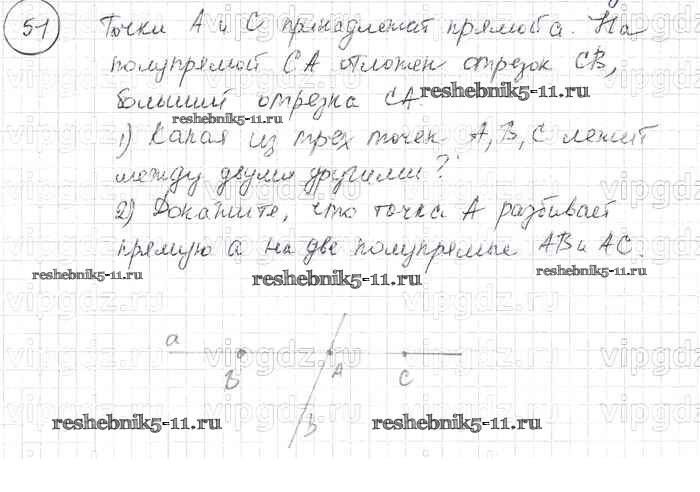 51 Точки А и С принадлежат прямой а. На
полупрямой СА отложен отрезок СВ,
reshebnik5-11.ru
больший отрезка СА.
reshebnik5-11.ru
1) Какая из трех точек А, В, С лежит
между двумя другими?
2) Докажите, что точка А разбивает
прямую а на две полупрямые АВ и АС.
reshebnik5-11.ru reshebnik5-11.ru reshebnik5-11.ru
vipgdz.ru vipgdz.ru vipgdz.ru
a
B A C
b
reshebnik5-11.ru reshebnik5-11.ru